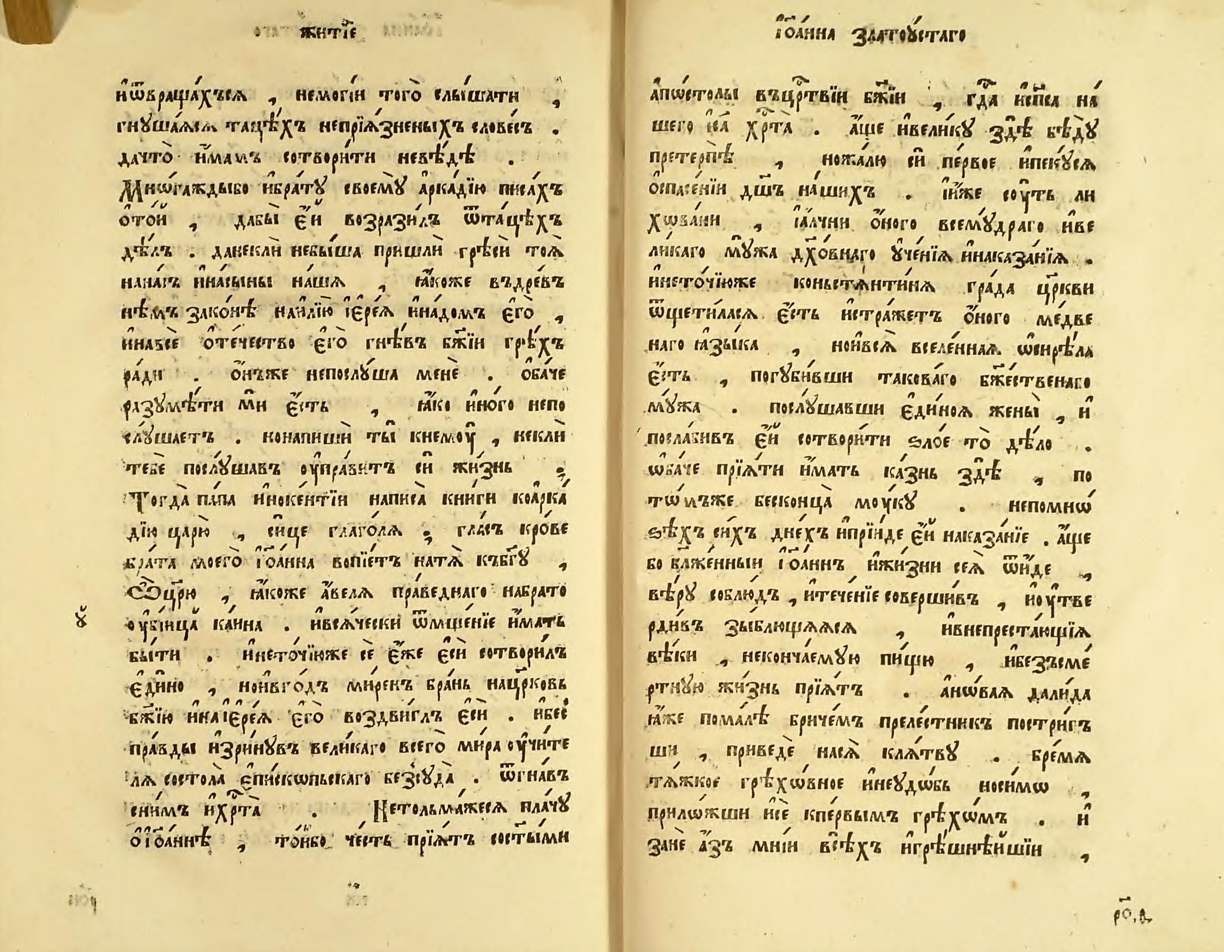 житїе
и҆ѿвраща́хъсѧ , немогі́й того̀ слы́шати ,
гнꙋша́ѧсѧ таце́хъ непрїѧ́зненыхъ слове́съ .
дачто̀ и҆́мамъ сотвори́ти невѣ́дѣ .
Мно́гаждыбо и҆бра́тꙋ своемꙋ̀ а҆рка́дїю писа́хъ
ѻ҆то́й , дабы̀ є҆́й возрази́лъ ѿта́цѣхъ
дѣ́лъ . данеклѝ небы́ша пришлѝ грѣ́си тоѧ̀
нана́съ и҆насы́ны на́шѧ , ꙗ҆́коже въдре́въ
нѣмъ зако́нѣ наи҆лі́ю і҆ере́ѧ и҆надо́мъ є҆го̀ ,
и҆навсѐ ѻ҆те́чество є҆го̀ гнѣ́въ бж҃їи грѣ́хъ
ра́ди . ѻ҆́нъже непослꙋ́ша менѐ . ѻ҆ба́че
разꙋмѣ́ти мѝ є҆́сть , ꙗ҆́ко и҆но́го непо
слꙋ́шаетъ . конапиши́ ты̀ кнемꙋ̀ , неклѝ
тебѐ послꙋ́шавъ оу҆пра́витъ сѝ жи́знь ;
Тогда̀ па́па и҆ноке́нтїи написа̀ кни́ги коа҆рка́
дїю царю̀ , си́це глаго́лѧ ; гла́съ кро́ве
бра́та моего̀ і҆ѻа́нна вопїе́тъ натѧ̀ къбг҃ꙋ ,
Ѽцр҃ю , ꙗ҆́коже а҆́велѧ пра́веднаго набрато
оу҆бі́йца ка́ина . и҆всѧ́чески ѿмще́нїе и҆́мать
бы́ти . и҆несто́чїюже сѐ є҆́же є҆сѝ сотвори́лъ
є҆ди́но , нои҆вго́дъ ми́ренъ бра́нь нацр҃ковь
бж҃їю и҆наі҆ере́ѧ є҆го̀ воздви́глъ є҆сѝ . и҆бес̾
пра́вды и҆зри́нꙋвъ вели́каго всего̀ ми́ра оу҆чи́те
лѧ состола̀ є҆пи́скопьскаго безсꙋда̀ . ѿгна́въ
сни́мъ и҆хрⷭ҇та̀ . Нетольма́жесѧ пла́чꙋ
ѻ҆і҆ѻа́ннѣ , то́йбо че́сть прїѧ́тъ состы́ми
ꙋ҃
І҆ѻа́нна златоꙋ́стаго
а҆пⷭ҇толы въцр҃твїи бж҃їи , гдⷭ҇а и҆сп҃са на́
шего і҆с҃а хрⷭ҇та̀ . а҆́ще и҆вели́кꙋ здѣ̀ бѣдꙋ̀
претерпѣ̀ , ножа́лю сѝ пе́рвое и҆пекꙋ́сѧ
ѻ҆спасе́нїи дш҃ъ на́шихъ . і҆и҆́же сꙋ́ть ли
хѡва́ни , і҆а҆́лчни ѻ҆́ного всемꙋ́драго и҆ве
ли́каго мꙋ́жа дꙋхо́внаго оу҆че́нїѧ и҆наказа́нїѧ .
и҆несто́чїюже коньстѧнти́нѧ гра́да цр҃кви
ѿщети́ласѧ є҆́сть и҆стра́жетъ ѻ҆́ного ме́две
наго ꙗ҆зы́ка , нои҆всѧ̀ вселе́ннаѧ ѡ҆сирѣ́ла
є҆́сть , погꙋби́вши такова́го бж҃е́ственаго
мꙋ́жа . послꙋ́шавши є҆ди́ноѧ жены̀ , и҆
посла́бивъ є҆́й сотвори́ти ѕло́е то̀ дѣ́ло .
ѡ҆ба́че прїѧ́ти и҆́мать ка́знь здѣ̀ , по
то́мъже бесконца̀ мо́укꙋ . непомно́
ѕѣ́хъ си́хъ дне́хъ и҆прїи́де є҆́й наказа́нїе . а҆́ще
бо бл҃же́нныи і҆ѻа́ннъ и҆жи́зни сеѧ̀ ѿи́де ,
вѣ́рꙋ соблю́дъ , и҆тече́нїе соверши́въ , и҆оу҆тве
рди́въ зы́блющѧѧсѧ , и҆внепреста́ющїѧ
вѣ́ки , некончае́мꙋю пи́щꙋ , и҆безъсме́
ртнꙋю жи́знь прїѧ́тъ . а҆но́ваѧ дали́да
ꙗ҆́же пома́лѣ бри́чемъ преле́стникъ постри́гъ
ши , приведѐ насѧ̀ клѧ́твꙋ . бре́мѧ
тѧ́жкое грѣхо́вное и҆неꙋдо́бь носи́мо ,
прило́жши и҆сѐ кпе́рвымъ грѣхо́мъ . и҆
занѐ а҆́зъ мні́и всѣ́хъ и҆грѣ́шнѣйшїи ,
ро҃а.